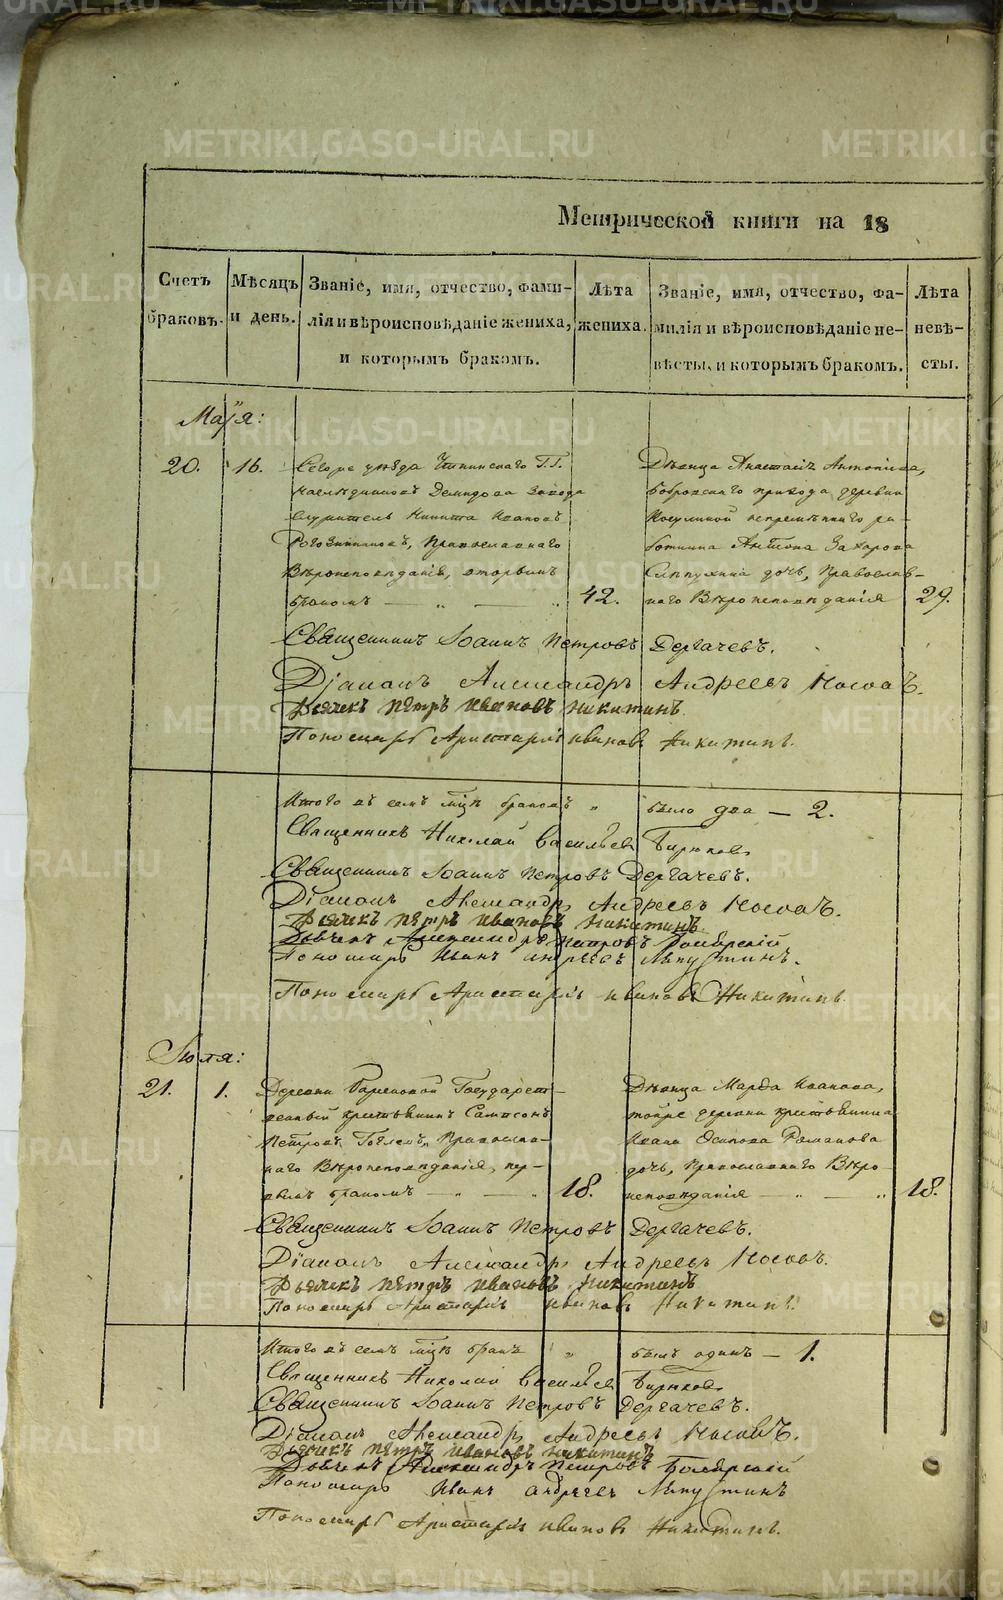 Метрической книги на 18
Счетъ браковъ.
Мѣсяцъ и день.
Званіе, имя, отчество, фами-
лія и вѣроисповѣданіе жениха,
и которымъ бракомъ.
Лѣта жениха.
Званіе, имя, отчество, фа-
милія и вѣроисповѣданіе не-
вѣсты, и которымъ бракомъ.
Лѣта невѣ-
сты.
Маія:
20. 16.
Сего уѣзда Г.Г.
наслѣдниковъ Демидова завода
служитель Никита Ивановъ
Православнаго
Вѣроисповѣданія, вторымъ
бракомъ — „ — „ 42.
Дѣвица Анастасія Антонова,
Бобровскаго прихода деревни
Косулиной непремѣннаго ра-
ботника Антона Захарова
дочь, Православ-
наго Вѣроисповѣданія 29.
Священникъ Іоаннъ Петровъ Дергачевъ.
Діаконъ Александръ Андреевъ Носовъ.
Дьячекъ Петръ Ивановъ Никитинъ.
Пономарь Аристархъ Ивановъ Никитинъ.
Итого въ семъ мцѣ браковъ „ было два — 2.
Священникъ Николай Васильевъ Бирюковъ
Священникъ Іоаннъ Петровъ Дергачевъ.
Діаконъ Александръ Андреевъ Носовъ.
Дьячекъ Петръ Ивановъ Никитинъ.
Дьячекъ Александръ Петровъ Боярскій
Пономарь Иванъ Андреевъ Ляпустинъ.
Пономарь Аристархъ Ивановъ Никитинъ.
Іюля:
21. 1.
Деревни Государст-
венный крестьянинъ Сампсонъ
Петровъ Православ-
наго Вѣроисповѣданія, пер-
вымъ бракомъ — „ — „ 18.
Дѣвица Марфа Иванова,
тойже деревни крестьянина
Ивана Осипова Романова
дочь, Православнаго Вѣро-
исповѣданія — „ — „ 18.
Священникъ Іоаннъ Петровъ Дергачевъ.
Діаконъ Александръ Андреевъ Носовъ.
Дьячекъ Петръ Ивановъ Никитинъ
Пономарь Аристархъ Ивановъ Никитинъ.
Итого въ семъ мцѣ бракъ „ былъ одинъ — 1.
Священникъ Николай Васильевъ Бирюковъ
Священникъ Іоаннъ Петровъ Дергачевъ.
Діаконъ Александръ Андреевъ Носовъ.
Дьячекъ Петръ Ивановъ Никитинъ
Дьячекъ Александръ Петровъ Боярскій
Пономарь Иванъ Андреевъ Ляпустинъ
Пономарь Аристархъ Ивановъ Никитинъ.
METRIKI.GASO-URAL.RU